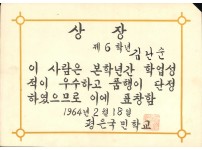 상장
제6학년 김난순
이 사람은 본학년간 학업성
적이 우수하고 품행이 단정
하였으므로 이에 표창함
1964년 2월 18일
정은국민학교